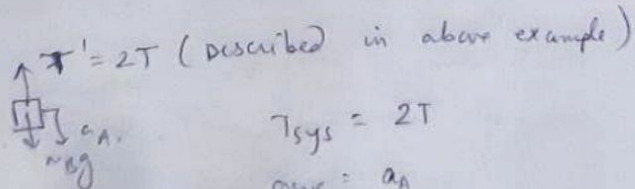 T' = 2T (Described in above example)
a_A.
m_B g
T_sys = 2T
a_sys = a_A